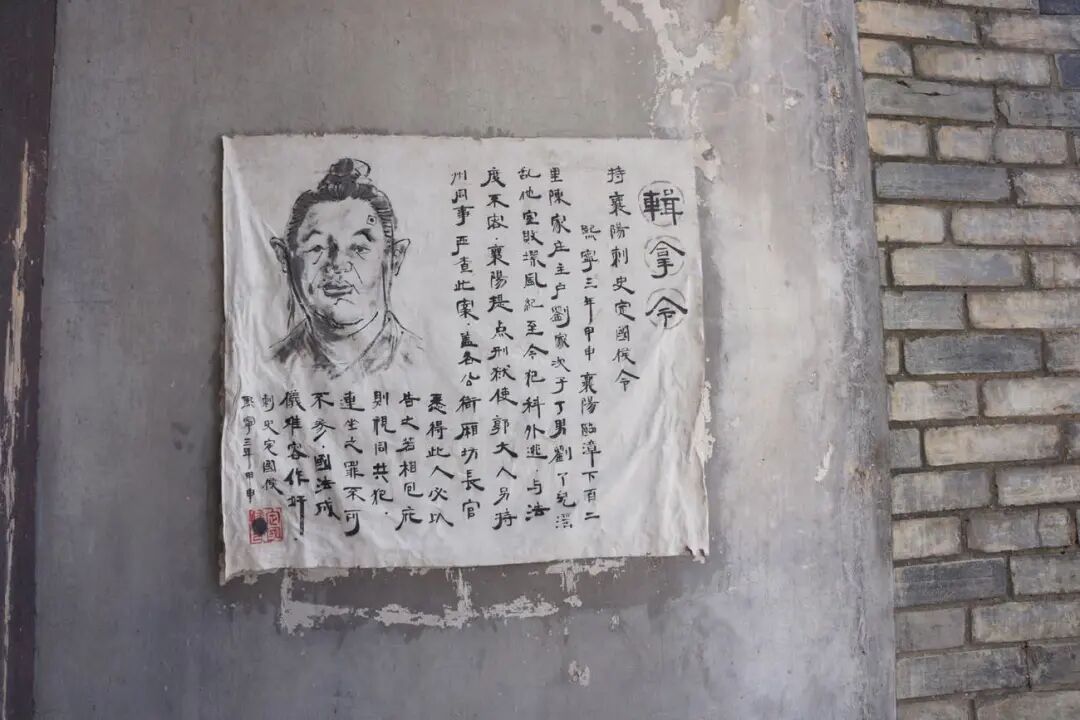 輯拿令
持襄陽刺史定國侯令
熙寧三年甲申襄陽臨漳下百二
里陳家庄主户劉家次子丁男劉丫兒淫
乱他室敗壞風紀至今犯科外逃·与法
度不容·襄陽提点刑狱使郭大人另持
州同事严查此案·盖各公衙厢坊長官
悉得此人必以
告之若相包庇
則視同共犯·
連坐之罪不可
不多·國法成
儀难容作奸
刺史定國侯
熙寧三年甲申
定國